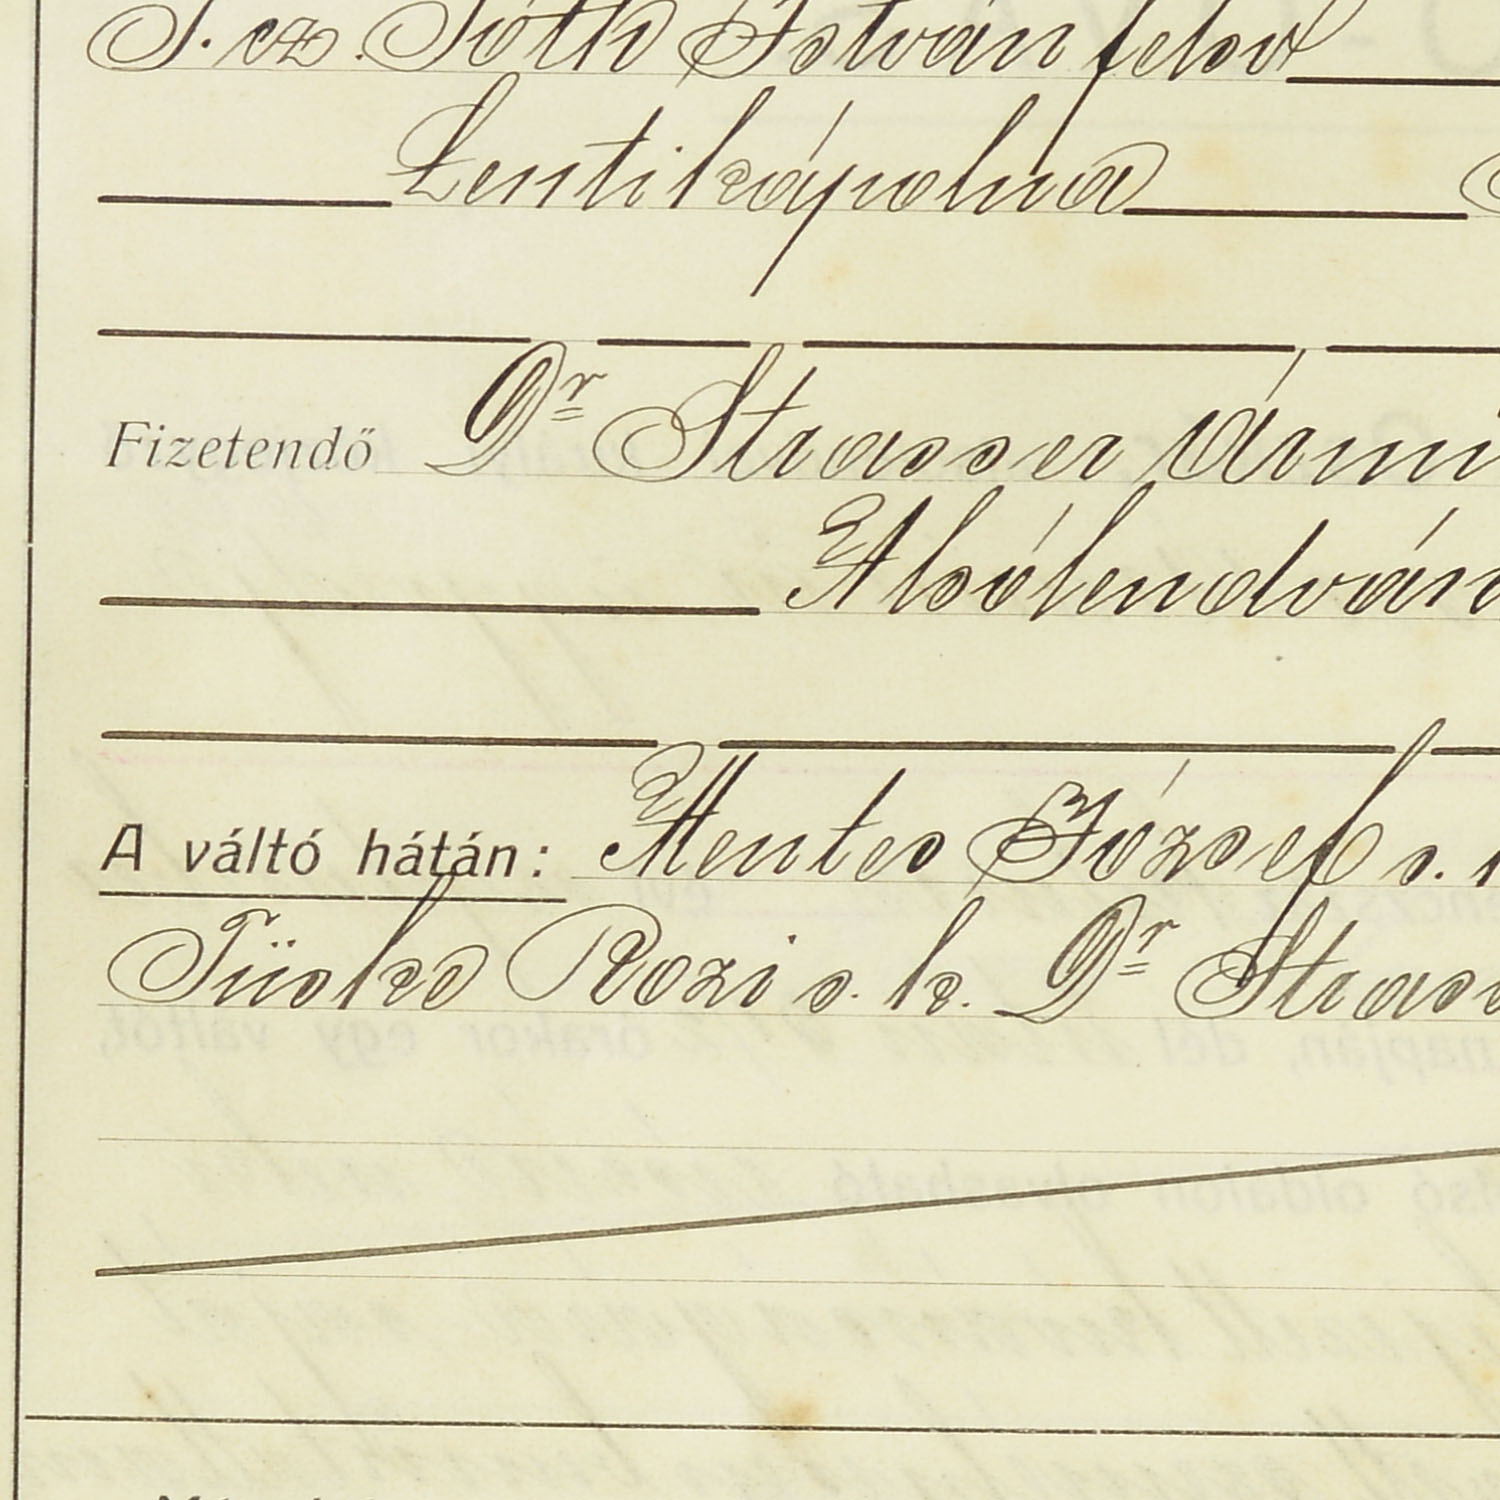 T. cz. Tóth István felső
Lentikápolna
Fizetendő Dr Strasser Ármi
Alsólendván
A váltó hátán: Mentes József s.
Tüske Rozi s. k. Dr Stras